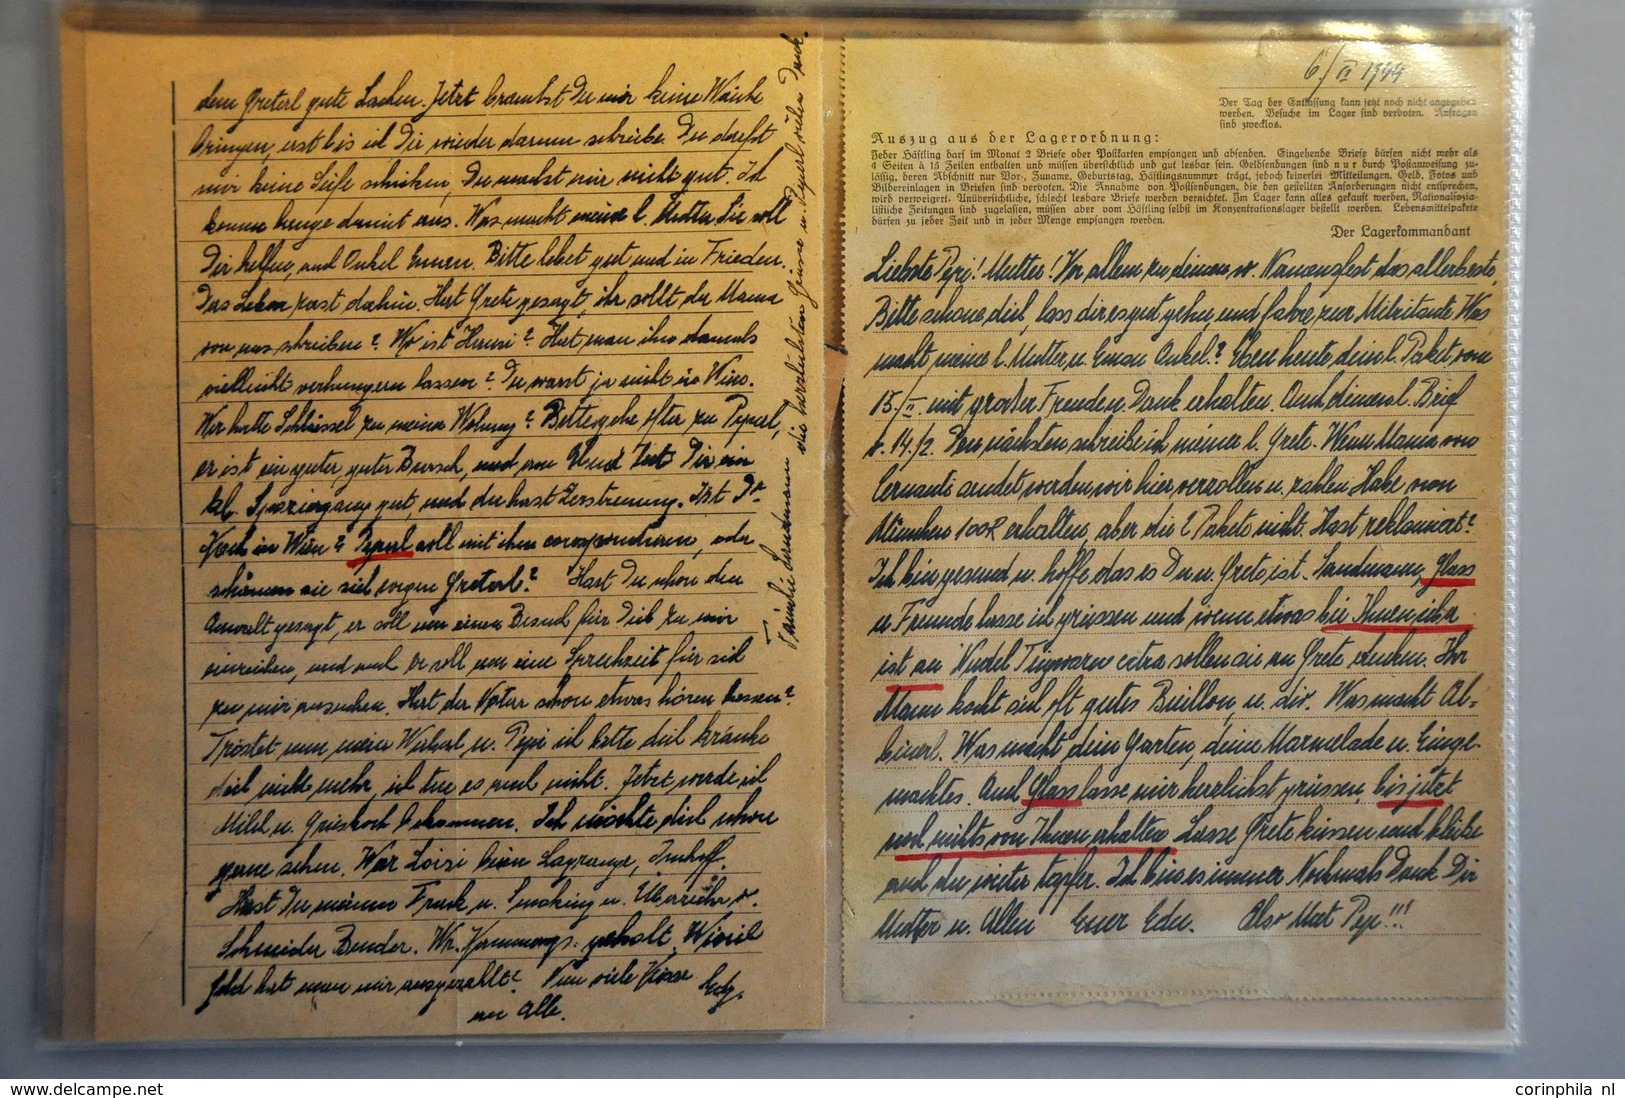 dem Greterl gute Sachen. Jetzt brauchst Du mir keine Wäsche
bringen, erst bis ich Dir wieder darum schreibe. Du darfst
mir keine Seife schicken, Du machst mir nicht gut. Ich
komme lange damit aus. Was macht meine l. Mutter Sie soll
Dir helfen, und Onkel Emmen. Bitte lebet gut und in Frieden.
Das Leben rast dahin. Hat Grete gesagt, ihr sollt der Mama
von uns schreiben? Wo ist Hansi? Hat man ihn damals
vielleicht verhungern lassen? Du warst ja nicht in Wien.
Wer hatte Schlüssel zu meiner Wohnung? Bitte gehe öfter zu Peperl,
er ist ein guter, guter Bursch, und am Hund tut Dir ein
kl. Spaziergang gut, und du hast Zerstreuung. Ist Dr.
Koch in Wien? Peperl soll mit ihm correspondieren, oder
schämen sie sich wegen Greterl? Hast Du schon dem
Anwalt gesagt, er soll um einen Besuch für Dich zu mir
einreichen, und auch er soll um eine Sprechzeit für sich
zu mir ansuchen. Hat der Notar schon etwas hören lassen?
Tröstet mir meine Weiberl u. Pepi ich bitte dich kränke
dich nicht mehr, ich tue es auch nicht. Jetzt werde ich
Milch u. Grieskoch bekommen. Ich möchte dich schon
gerne sehen. War Loisi beim Lagrange, Imhoff.
Hast Du meinen Frack u. Smoking u. Überzieher v.
Schneider Bender. Wr. geholt. Wieviel
Geld hat man mir ausgezahlt? Nun viele Küsse Edy.
an Alle.
Familie Landmann die herzlichsten Grüsse u. Peperl vielen Dank.
6/II 1944
Der Tag der Entlassung kann jetzt noch nicht angegeben
werden. Besuche im Lager sind verboten. Anfragen
sind zwecklos.
Auszug aus der Lagerordnung:
Jeder Häftling darf im Monat 2 Briefe oder Postkarten empfangen und absenden. Eingehende Briefe dürfen nicht mehr als
4 Seiten à 15 Zeilen enthalten und müssen übersichtlich und gut lesbar sein. Geldsendungen sind nur durch Postanweisung zu-
lässig, deren Abschnitt nur Vor-, Zuname, Geburtstag, Häftlingsnummer trägt, jedoch keinerlei Mitteilungen. Geld, Fotos und
Bildereinlagen in Briefen sind verboten. Die Annahme von Postsendungen, die den gestellten Anforderungen nicht entsprechen,
wird verweigert. Unübersichtliche, schlecht lesbare Briefe werden vernichtet. Im Lager kann alles gekauft werden. Nationalsozia-
listische Zeitungen sind zugelassen, müssen aber vom Häftling selbst im Konzentrationslager bestellt werden. Lebensmittelpakete
dürfen zu jeder Zeit und in jeder Menge empfangen werden.
Der Lagerkommandant
Liebste Pepi! Mutter! Vor allem zu deinem w. Namensfest das allerbeste,
Bitte schone dich, lass dir es gut gehn, und fahre zur Was
macht meine l. Mutter u. Onkel? Eben heute dein l. Paket vom
15./II. mit großer Freude u. Dank erhalten. Auch deinen l. Brief
v. 14./2. Den nächsten schreibe ich meiner l. Grete. Wenn Mama von
sendet werden wir hier verzollen u. zahlen Habe von
München 100R erhalten, aber die 2 Pakete nicht. Hast reklamiert?
Ich bin gesund u. hoffe das es Du u. Grete ist. Landmann, Glass
u Freunde lasse ich grüssen und wenn etwas bei Ihnen
ist an Nudel Teigwaren extra sollen sie an Grete denken. Ihr
Mann kocht sich oft gutes Buillon, u. div. Was macht Al-
binerl. Was macht dein Garten, deine Marmelade u. Einge-
machtes. Auch Glass lasse mir herzlichst grüssen, bis jetzt
noch nichts von Ihnen erhalten Lasse Grete küssen und bleibe
auch du weiter tapfer. Ich bin es immer Nochmals Dank Dir
Mutter u. Allen Euer Edu. Also Mut Pepi!!!
corinphila nl